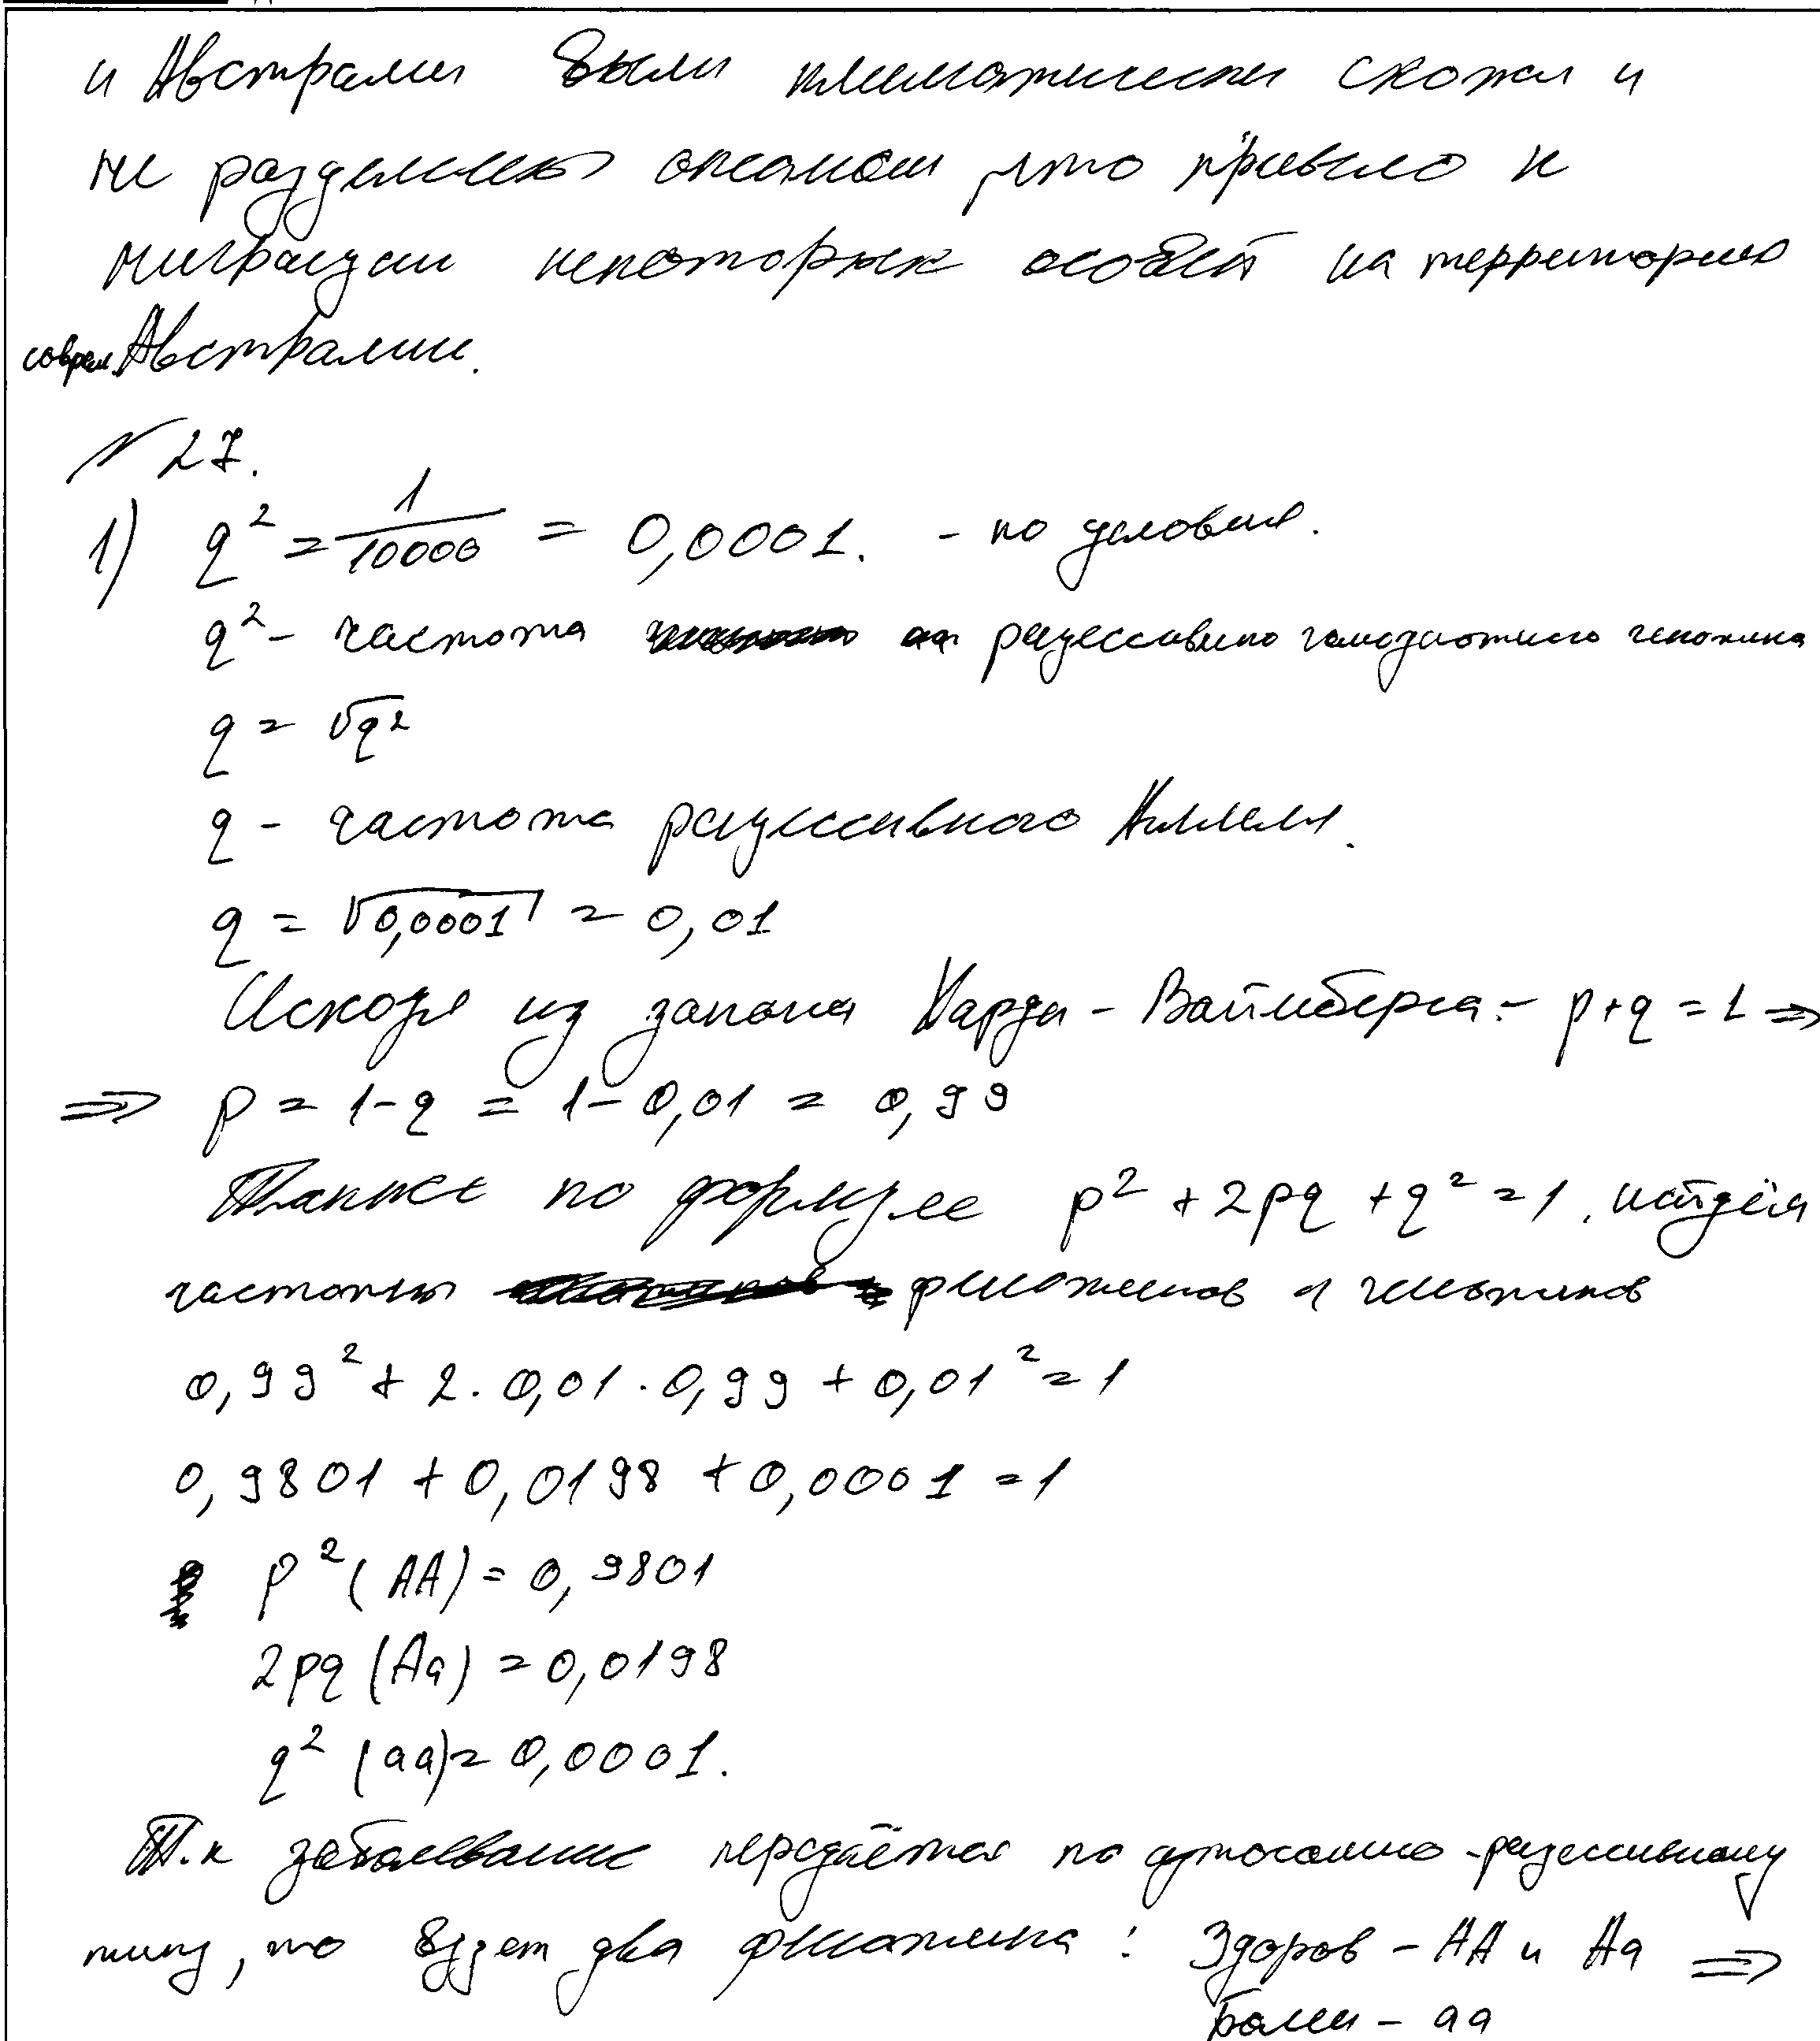 и Австралии были климатически схожи и
не разделены океаном, что привело к
миграции некоторых особей на территорию
соврем. Австралии.
№ 27.
1) q² = 1/10000 = 0,0001. - по условию.
q² - частота рецессивно гомозиготного генотипа
q = √q²
q - частота рецессивного Аллеля.
q = √0,0001 = 0,01
Исходя из закона Харди - Вайнберга: - p+q = 1 ⇒
⇒ p = 1-q = 1-0,01 = 0,99
Также по формуле p² + 2pq + q² = 1, найдём
частоты фенотипов и генотипов
0,99² + 2 · 0,01 · 0,99 + 0,01² = 1
0,9801 + 0,0198 + 0,0001 = 1
p² (AA) = 0,9801
2pq (Aa) = 0,0198
q² (aa) = 0,0001.
Т.к заболевание передаётся по аутосомно-рецессивному
типу, то будет два фенотипа: Здоров - AA и Aa ⇒
Болен - aa